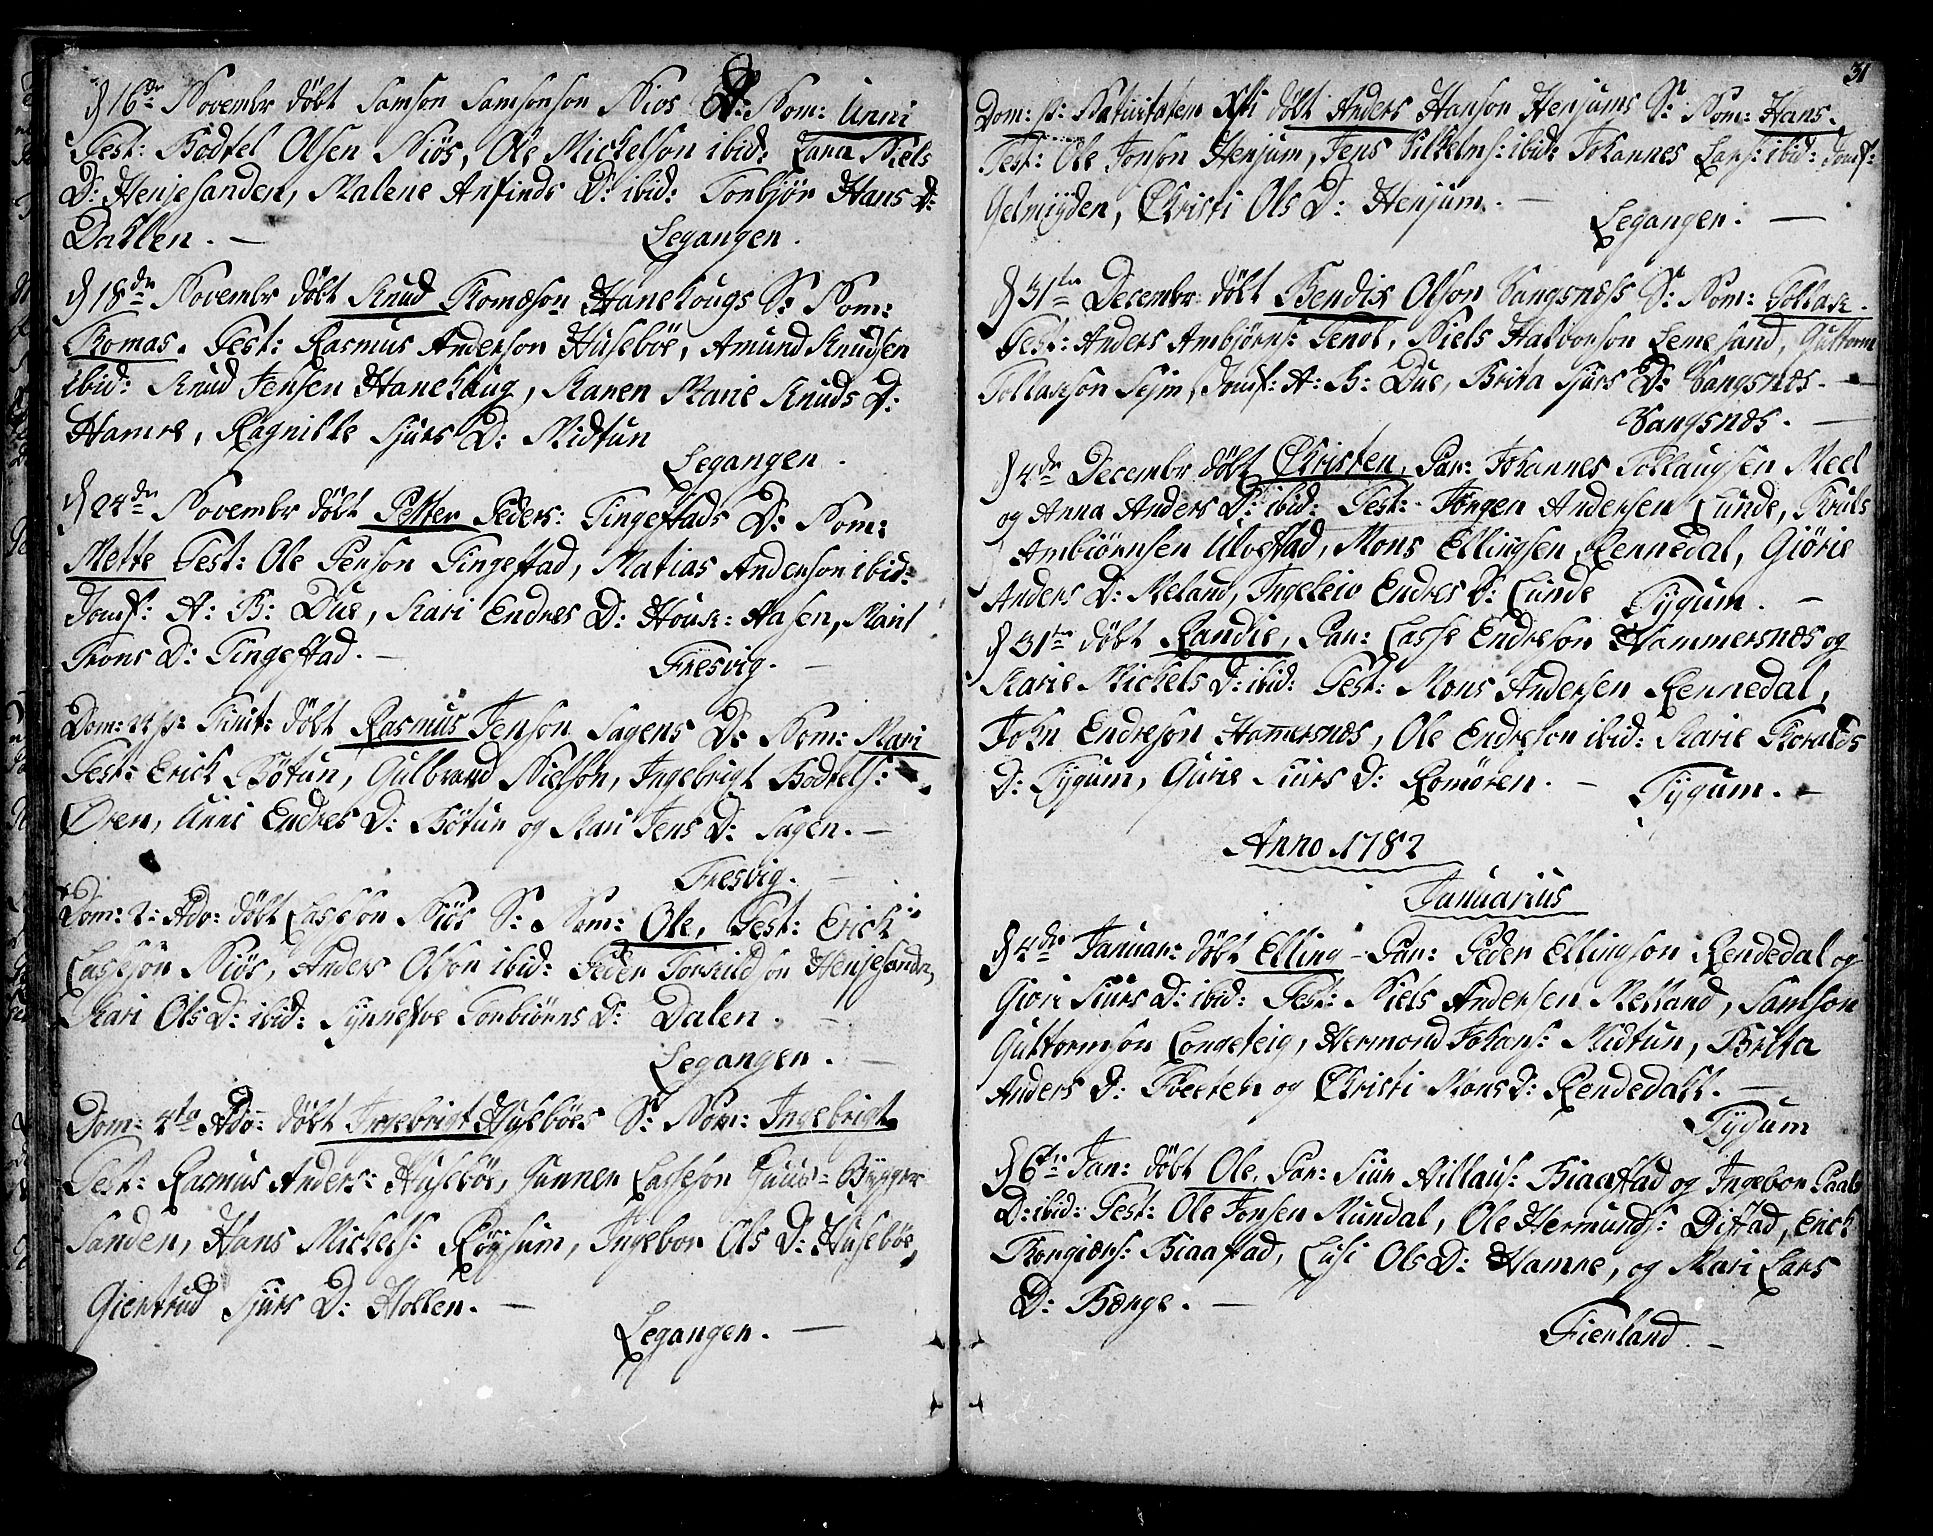 d 16de Novembr döbt Samson Samsonson Niøs D: Nom: Unni
Test: Bodtel Olsen Niös, Ole Mickelson ibid: Lana Niels
D: Henjesanden, Malene Anfinds D: ibid: Torbjør Hans D:
Dahlen. — Legangen.
d 18de Novembr döbt Knud Thomæson Hanehougs S: Nom:
Thomas. Test: Rasmus Anderson Huseböe, Amund Knudsen
ibid: Knud Jensen Hanehaug, Karen Marie Knuds D:
Hamre, Ragnilde Sjurs D: Midtun
Legangen.
d 24de Novembr döbt Petter Peders: Tingestads D: Nom:
Mette Test: Ole Person Tingestad, Matias Anderson ibid:
Jomf: A: B: Due, Kari Endres D: Houk: Aasen, Marit
Trons D: Tingestad. —
Fresvig. —
Dom: 24 p: Trinit: döbt Rasmus Jenson Sagens D: Nom: Mari
Test: Erick Bötun, Gulbrand Nielson, Ingebrigt Bodtels:
Øren, Unni Endres D: Bötun og Kari Jens D: Sagen. —
Fresvig. —
Dom: 2: Adv: döbt Lasseson Niös S: Nom: Ole, Test: Erick
Lasseson Niös, Anders Olson ibid: Peder Torkildson Henjesande,
Kari Ols D: ibid: Synneve Torbiörns D: Dalen. —
Legangen. —
Dom: 4ta Adv: döbt Ingebrigt Huseböes S: Nom: Ingebrigt
Test: Rasmus Anders: Huseböe, Gunner Lasseson Huus-Bygger
Sanden, Hans Mickels: Röysum, Ingebor Ols D: Huseböe,
Giertrud Sjurs D: Hollen. —
Legangen. —
31
Dom: p: Nativitatem Xsti döbt Anders Hanson Henjums S: Nom: Hans.
Test: Ole Jonson Henjum, Jens Vilhelms: ibid: Johannes Lars: ibid: Jomf:
Gelmuyden, Christi Ols D: Henjum. —
Legangen: —
d 31te Decembr döbt Bendix Olson Vangsness S: Nom: Tollak.
Test: Anders Ambjörns: Tenol, Niels Halvorson Lemesand, Guttorm
Tollakson Sejm, Jomf: A: B: Due, Brita Sjurs D: Vangsnæs. —
Vangsnæs. —
d 4de Decembr döbt Christen, Par: Johannes Tollaugsen Meel
og Anna Anders D: ibid: Test: Jörgen Andersen Lunde,
Ambiörnsen Ulvestad, Mons Ellingsen Rennedal, Giörie
Anders D: Meland, Ingeleiv Endres D: Lunde Tygum. —
d 31te döbt Randie, Par: Lasse Endreson Hammersnæs og
Marie Mickels D: ibid: Test: Mons Andersen Rennedal,
John Endreson Hamersnæs, Ole Endreson ibid: Marie Thoralds
D: Tygum, Gurie Siurs D: Romören. — Tygum. —
Anno 1782
Januarius
d 4de Januar: döbt Elling - Par: Peder Ellingson Rendedal og
Giöri Siurs D: ibid: Test: Niels Andersen Melland, Samson
Guttormson Longeteig, Hermond Johans: Midtun, Britta
Anders D: Tveeten og Christi Mons D: Rendedall. —
Tygum
d 6te Jan: döbt Ole, Par: Siur Villaus: Biaastad og Ingebor Paals
D: ibid: Test: Ole Jonsen Mundal, Ole Hermunds: Distad, Erick
Thorgiers: Biaastad, Lisi Ols D: Hamre, og Mari Lars
D: Berge. —
Fierland. —